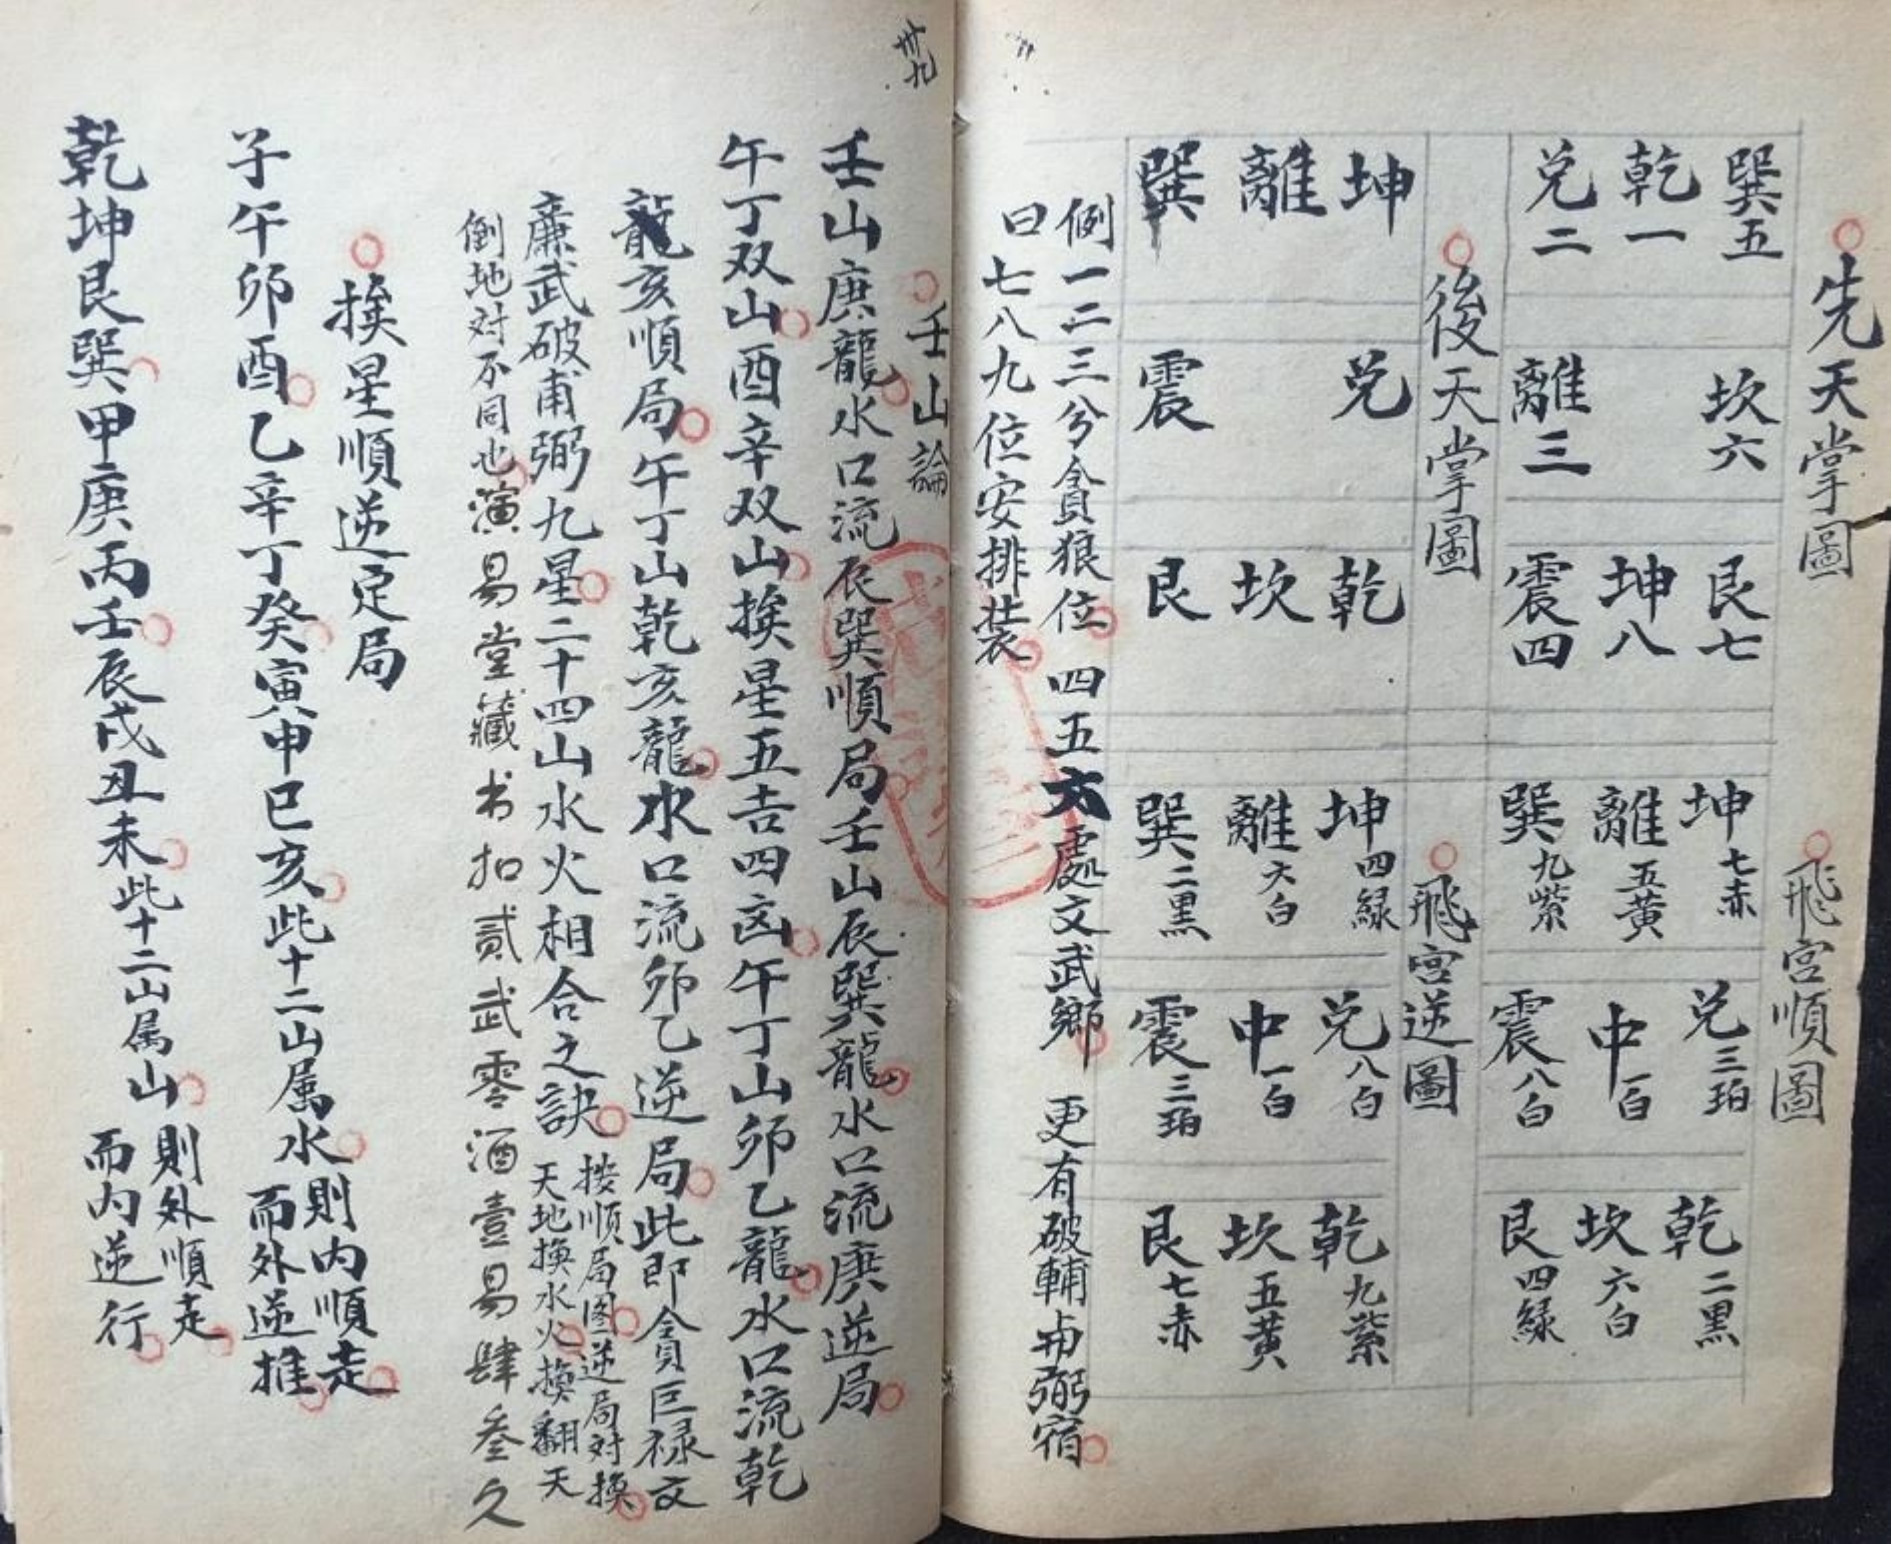 先天掌圖
巽五 乾一 兌二
坎六 離三
艮七 坤八 震四
後天掌圖
坤 離 巽
兌 震
乾 坎 艮
飛宮順圖
坤七赤 離五黃 巽九紫
兌三珀 中一白 震八白
乾二黑 坎六白 艮四綠
飛宮逆圖
坤四綠 離六白 巽二黑
兌八白 中一白 震三珀
乾九紫 坎五黃 艮七赤
例一二三兮貪狼位 四五六處文武鄉 更有破輔冉弼宿
曰七八九位安排裝
卅九
壬山論
壬山庚龍水口流辰巽順局壬山辰巽龍水口流庚逆局
午丁双山酉辛双山挨星五吉四凶午丁山卯乙龍水口流乾
龍亥順局午丁山乾亥龍水口流卯乙逆局此即貪巨禄文
廉武破甫弼九星二十四山水火相合之訣
按順局图逆局対換
天地換水火換翻天
倒地対不同也
演易堂藏书扣贰武零酒壹易肆叁久
挨星順逆定局
子午卯酉乙辛丁癸寅申巳亥此十二山属水
則内順走
而外逆推
乾坤艮巽甲庚丙壬辰戌丑未此十二山属山
則外順走
而内逆行